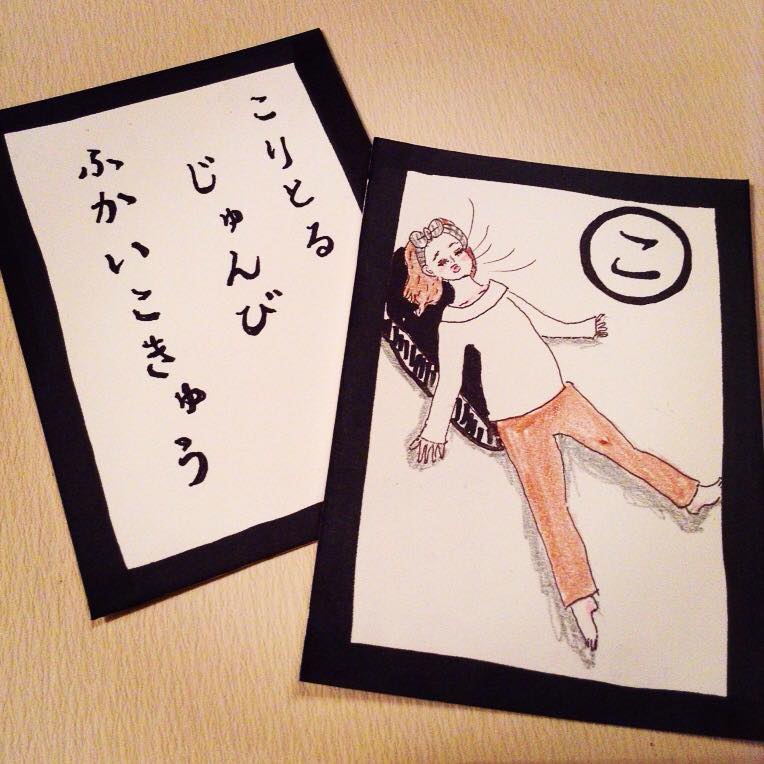 こりとる
じゅんび
ふかいこきゅう
こ